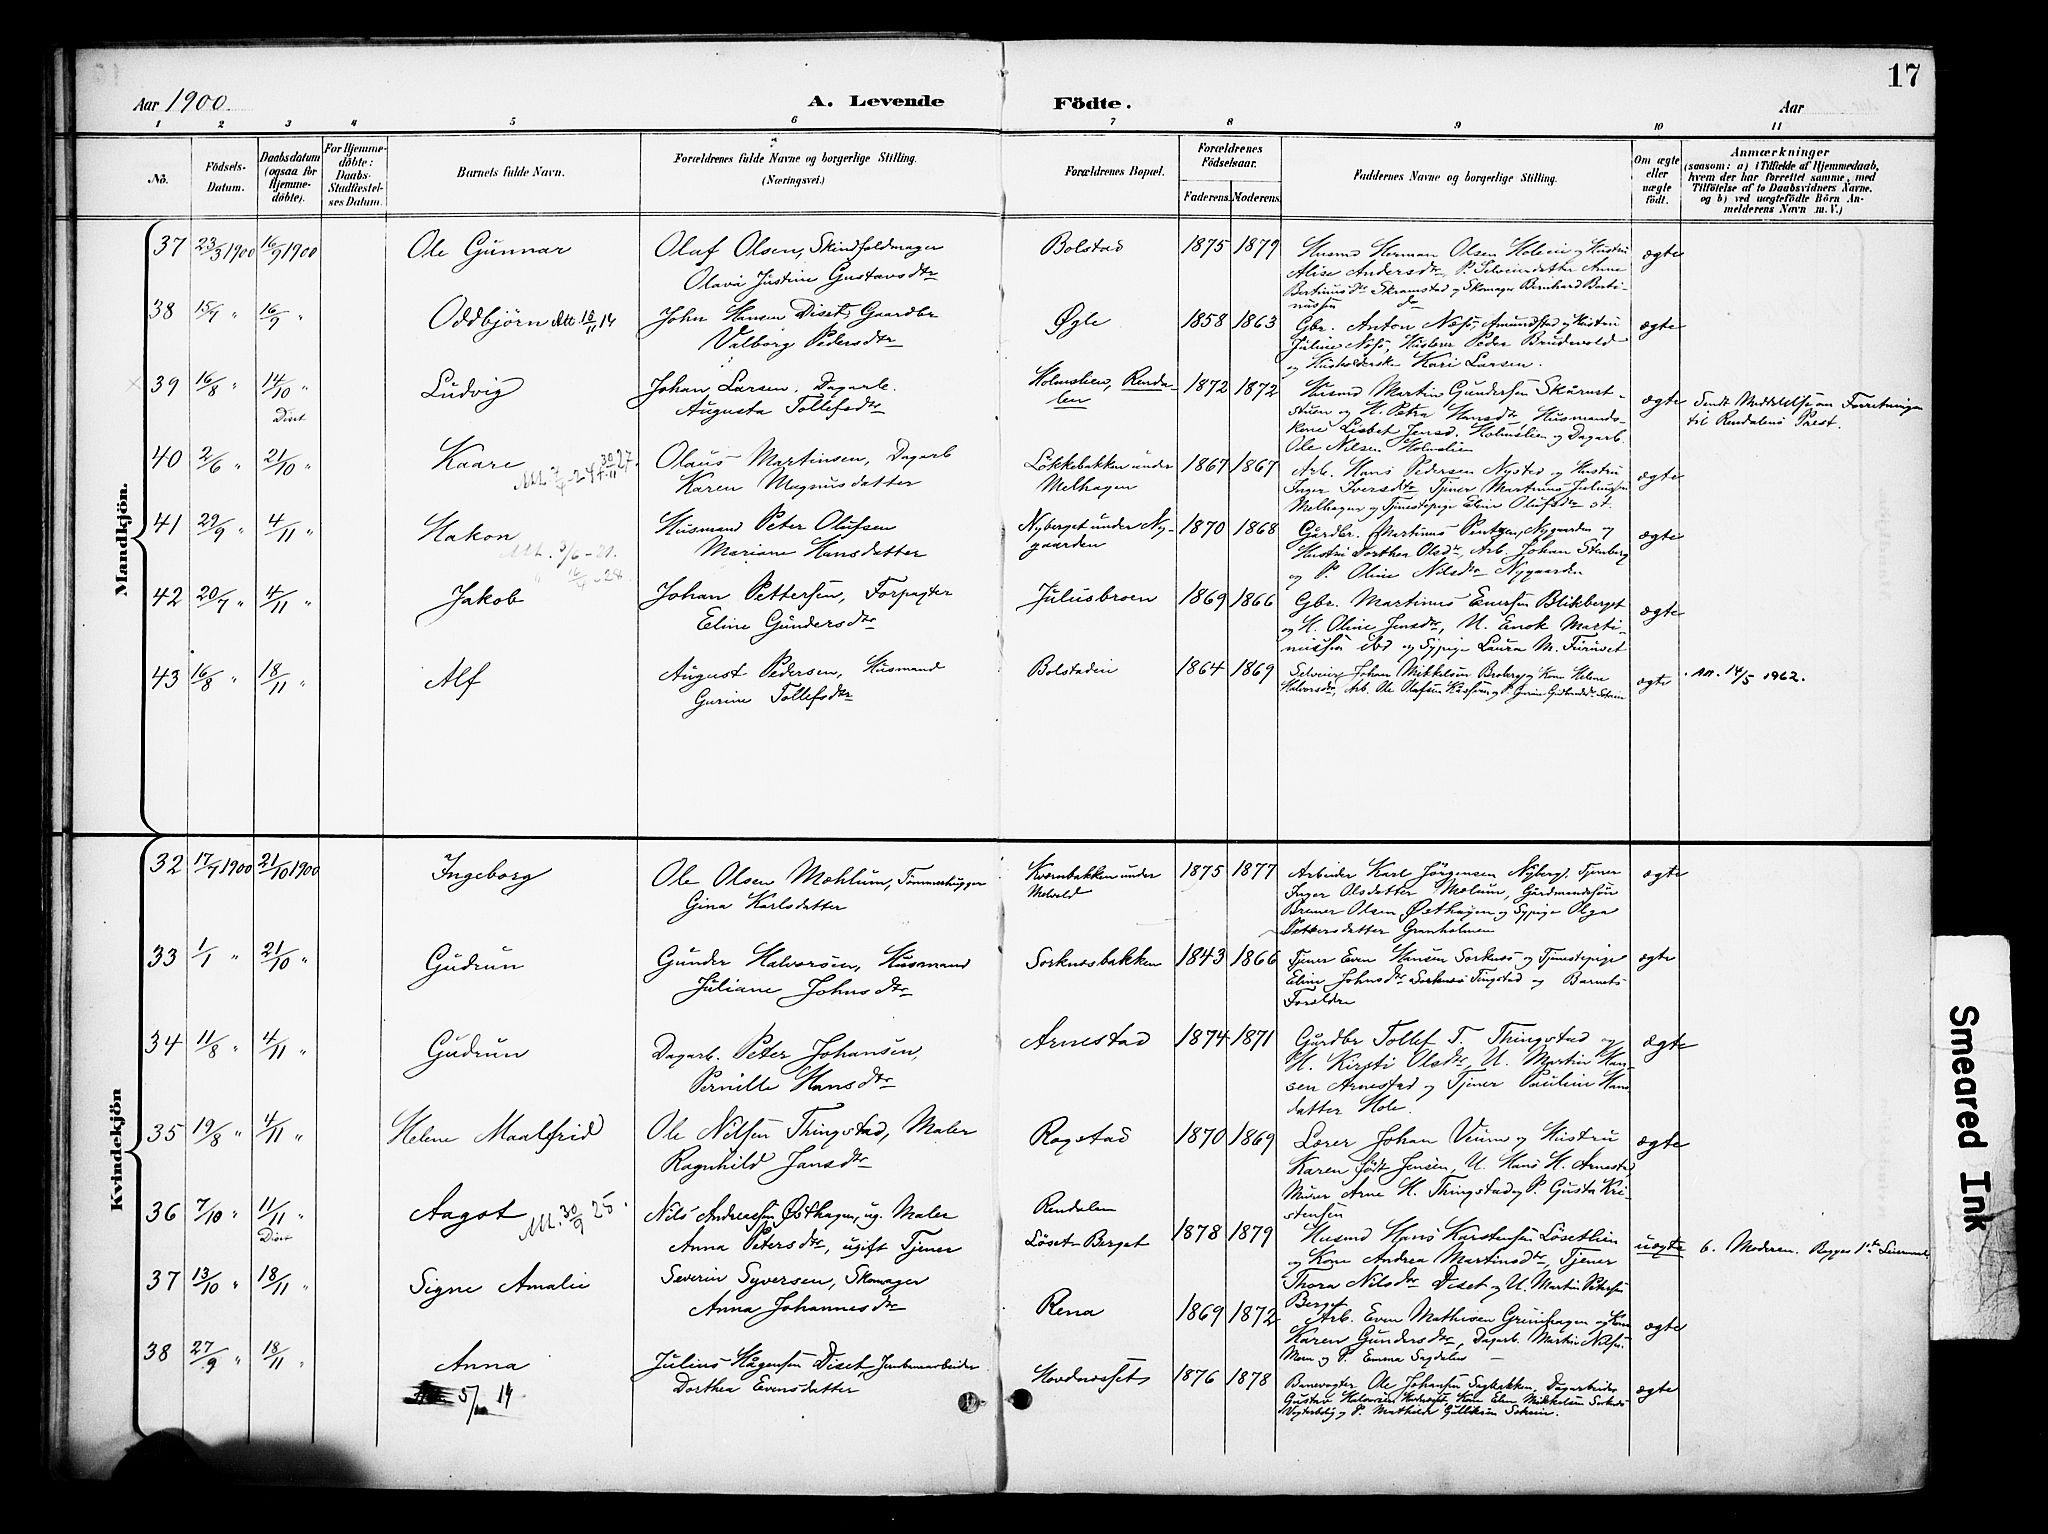 17
Aar 1900
A. Levende Födte.
Aar
1 2 3 4 5 6 7 8 9 10 11
No.
Födsels-Datum.
Daabsdatum (ogsaa for Hjemme-döbte).
For Hjemme-döbte: Daabs-Stadfæstel-ses Datum.
Barnets fulde Navn.
Forældrenes fulde Navne og borgerlige Stilling. (Næringsvei.)
Forældrenes Bopæl.
Forældrenes Födselsaar.
Faderens Moderens
Faddernes Navne og borgerlige Stilling.
Om ægte eller uægte født.
Anmærkninger
(saasom: a) i Tilfælde af Hjemmedaab,
hvem der har forrettet samme, med
Tilføielse af to Daabsvidners Navne.
og b) ved uægtefødte Börn An-
melderens Navn m. V.)
Mandkjön.
37 23/3 1900 16/9 1900 Ole Gunnar
Olaf Olsen, Skindfeldmager
Olava Justine Gustavsdtr
Bolstad 1875 1879
Husmd Herman Olsen Holein og Hustru
Alise Andersdtr, P. Selveierdatter Anne
Bertinusdr Skramstad og Skomager Bernhard Berti-
nussen do
ægte
38 15/7 " 16/9 " Oddbjörn Att. 18/11 14
John Hansen Diset, Gaardbr
Valborg Pedersdtr
Øgle 1858 1863
Gbr. Anton Næss, Amundstad og Hustru
Juline Næss, Huslerer Peder Brudevold
og Husholderske Kari Larsen.
ægte
39 16/8 " 14/10 " Diset Ludvig
Johan Larsen, Dagarb.
Augusta Tollefsdtr
Holmslien, Renda-
len
1872 1872
Husmd Martin Gundersen Skårmt-
stuen og H. Petra Hansdtr, Husmands-
kone Lisbet Jensd. Holmslien og Dagarb.
Ole Nilsen Holmslien
ægte
Sendt Meddelelse om Forretningen
til Rendalens Prest.
40 2/6 " 21/10 " Kaare
Olaus Martinsen, Dagarb
Karen Magnusdatter
Løkkebakken under
Melhagen
1867 1867
Arb. Hans Pedersen Nysted og Hustru
Inger Iversdtr Tjener Martinus Julius
Melhagen og Tjenestepige Eline Olufsdtr st.
ægte
41 29/9 " 4/11 " Hakon
Att. 3/6 - 21.
" 16/4 - 28
Husmand Peter Olufsen
Mariane Hansdatter
Nyberget under Ny-
gaarden
1870 1868
Gårdbr. Martinus Pentzen, Nygaarden og
Hustru Dorthea Olsdtr, Arb. Johan Stenberg
og P. Oline Nilsdtr Nygaarden
ægte
42 20/7 " 4/11 " Jakob
Johan Pettersen, Forpagter
Eline Gundersdtr
Julusbroen 1869 1866
Gbr. Martinus Enersen Blikberget
og H. Oline Jensdtr, U. Enok Marti-
nussen ibd og Sypige Laura M. Furuset
ægte
43 16/8 " 18/11 " Alf
August Pedersen, Husmand
Gurine Tollefsdtr
Bolstadeie 1864 1869
Selveier Johan Mikkelsen Broberg og Kone Helene
Halvorsdtr, Arb. Ole Olafsen
ægte
Att. 14/5 1962.
Kvindekjön
32 17/7 1900 21/10 1900 Ingeborg
Ole Olsen Mæhlum, Tømmerhugger
Gina Karlsdatter
Kværnbakken under
Melvold
1875 1877
Arbeider Karl Jörgensen Nyberg, Tjener
Inger Olsdatter Mælum, Gårdmandssön
Brener Olsen Østhagen og Sypige Olga
Pettersdatter Granholmen
ægte
33 1/1 " 21/10 " Gudrun
Gunder Halvorsen, Husmand
Juliane Johnsdtr
Sorknesbakken 1843 1866
Tjener Even Hansen Sorknes og Tjenestepige
Eline Johnsdtr Sorknes Tingstad og Barnets
Foreldre
ægte
34 11/8 " 4/11 " Gudrun
Dagarb. Peter Johansen,
Pernille Hansdtr
Arnestad 1874 1871
Gårdbr Tollef T. Thingstad og
H. Kirsti Olsdtr, U. Martin Han-
sen Arnestad og Tjener Pauline Hans
datter Hole.
ægte
35 19/8 " 4/11 " Helene Maalfrid
Ole Nilsen Thingstad, Maler
Ragnhild Jansdtr
Rogstad 1870 1869
Lærer Johan Veum og Hustru
Karen født Jensen, U. Hans H. Arnestad,
Murer Arne H. Thingstad og P. Gusta Kri-
stensen
ægte
36 7/10 " 11/11 " Diset Aagot Att. 30/9 25.
Nils Andreassen Østhagen, ug. Maler
Anna Petersdtr, ugift Tjener
Rendalen
Løset-Berget
1878 1879
Husmd Hans Karstensen Løsetlien
og Kone Andrea Martinsdtr, Tjener
Thora Nilsdtr Diset og U. Martin Petersen
Berget
uægte
b. Moderen. Begges 1ste Leiermaal
37 13/10 " 18/11 " Signe Amalie
Severin Syversen, Skomager
Anna Johannesdtr
Rena 1869 1872
Arb. Even Mathisen Grinhagen og Kone
Karen Gundersdtr, Dagarb. Martin Nilsen
Moen og P. Emma Sagdalen
ægte
38 27/9 " 18/11 " Anna
5/10 14
Julius Hågensen Diset, Jernbanearbeider
Dorthea Evensdatter
Hovdnæsset 1876 1878
Banevogter Ole Johansen Sagbakken, Dagarbeider
Gustav Halvorsen Hovdneset, Kone Elen Mikkelsen Sorknes
Vogterbolig og P. Mathilde Gulliksen
ægte
Smeared Ink